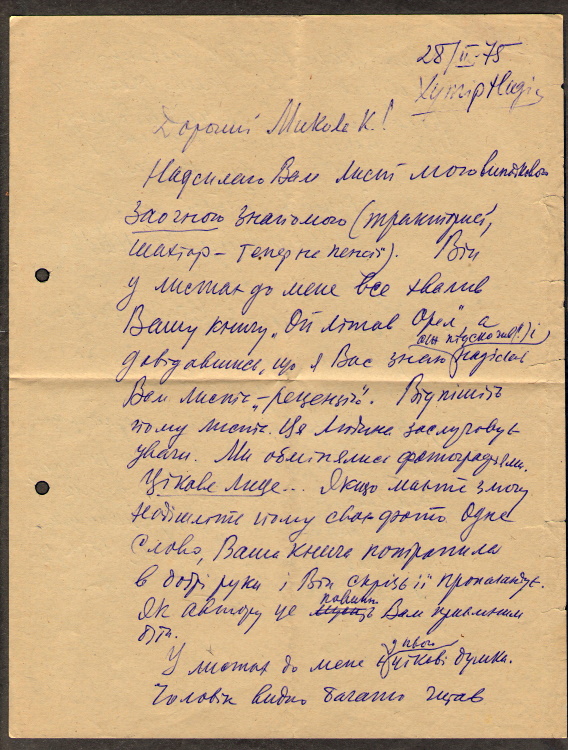 28/II-75
Хутір Надія
Дорогий Микола К.!
Надсилаю Вам лист мого випадкового
заочного знайомого (тракторист,
шахтар – тепер на пенсії). Він
у листах до мене все хвалив
Вашу книгу „Ой літав Орел“, а
довідавшись, що я Вас знаю надіслав
Вам листа „-рецензію“. Відпишіть
йому листа. Ця людина заслуговує
уваги. Ми обмінялися фотографіями.
Цікаве лице... Якщо маєте змогу
надішліть йому своє фото. Одне
слово, Ваша книга потрапила
в добрі руки і Він скрізь її пропагандує.
Як автору це повинно Вам приємним
бути.
У листах до мене є цікаві думки.
Чоловік видно багато читав